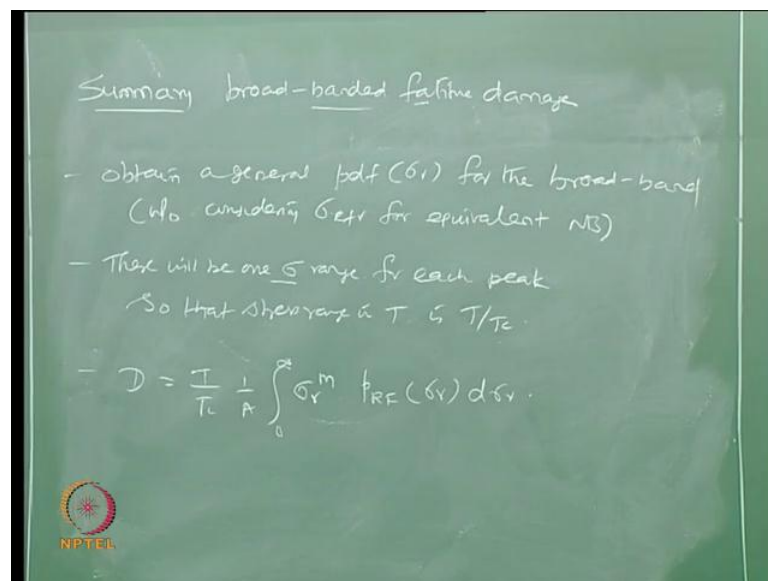 Summary broad-banded fatigue damage
- obtain a general pdf (σr) for the broad-band
(w/o considering σeqr for equivalent NB)
- There will be one σ range for each peak
So that stress range in T is T/Tc.
- D = T/Tc 1/A ∫₀^∞ σr^m pRF (σr) dσr.
NPTEL